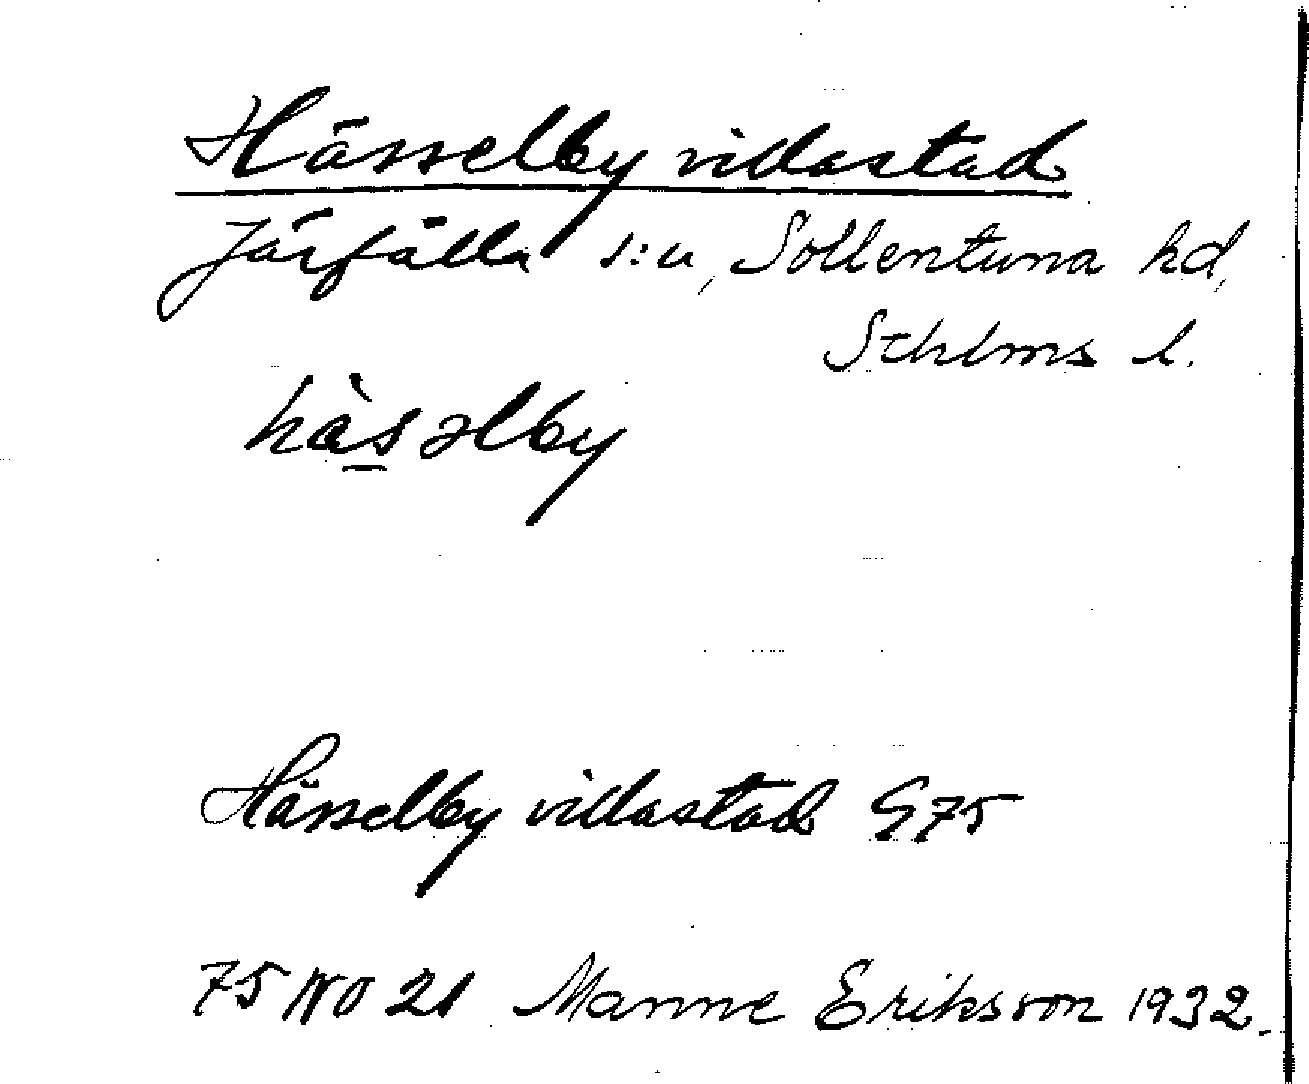 Hässelby villastad
Järfälla s:n, Sollentuna hd,
Sthlms l.
hàs̲əlby
Hässelby villastad G75
75 NO 21 Manne Eriksson 1932.